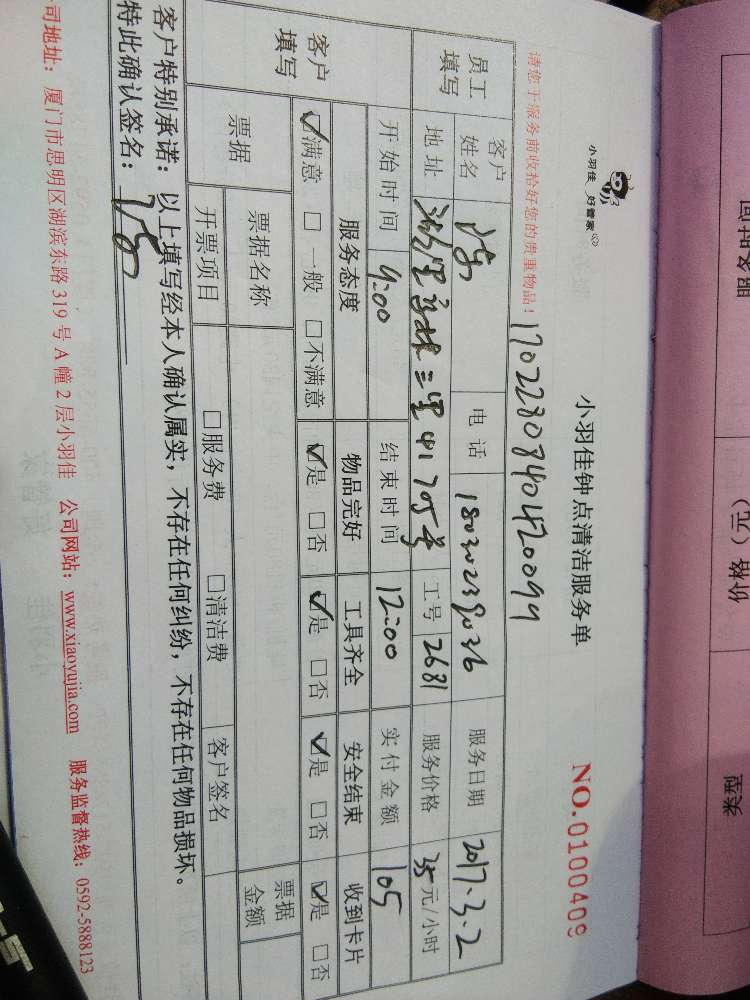 小羽佳 好管家
小羽佳钟点清洁服务单
NO.0100409
请您于服务前收拾好您的贵重物品！
1702280840420099
员工填写
客户姓名 电话 18030239036 服务日期 2017.3.2
地址 三里 工号 2681 服务价格 35元/小时
开始时间 9:00 结束时间 12:00 实付金额 105
客户填写
服务态度 物品完好 工具齐全 安全结束 收到卡片
☑满意 □一般 □不满意 ☑是 □否 ☑是 □否 ☑是 □否 ☑是 □否
票据 票据名称 票据金额
开票项目 □服务费 □清洁费 客户签名
客户特别承诺：以上填写经本人确认属实，不存在任何纠纷，不存在任何物品损坏。
特此确认签名：
司地址：厦门市思明区湖滨东路319号A幢2层小羽佳 公司网站：www.xiaoyujia.com 服务监督热线：0592-5888123
价格（元）
类型